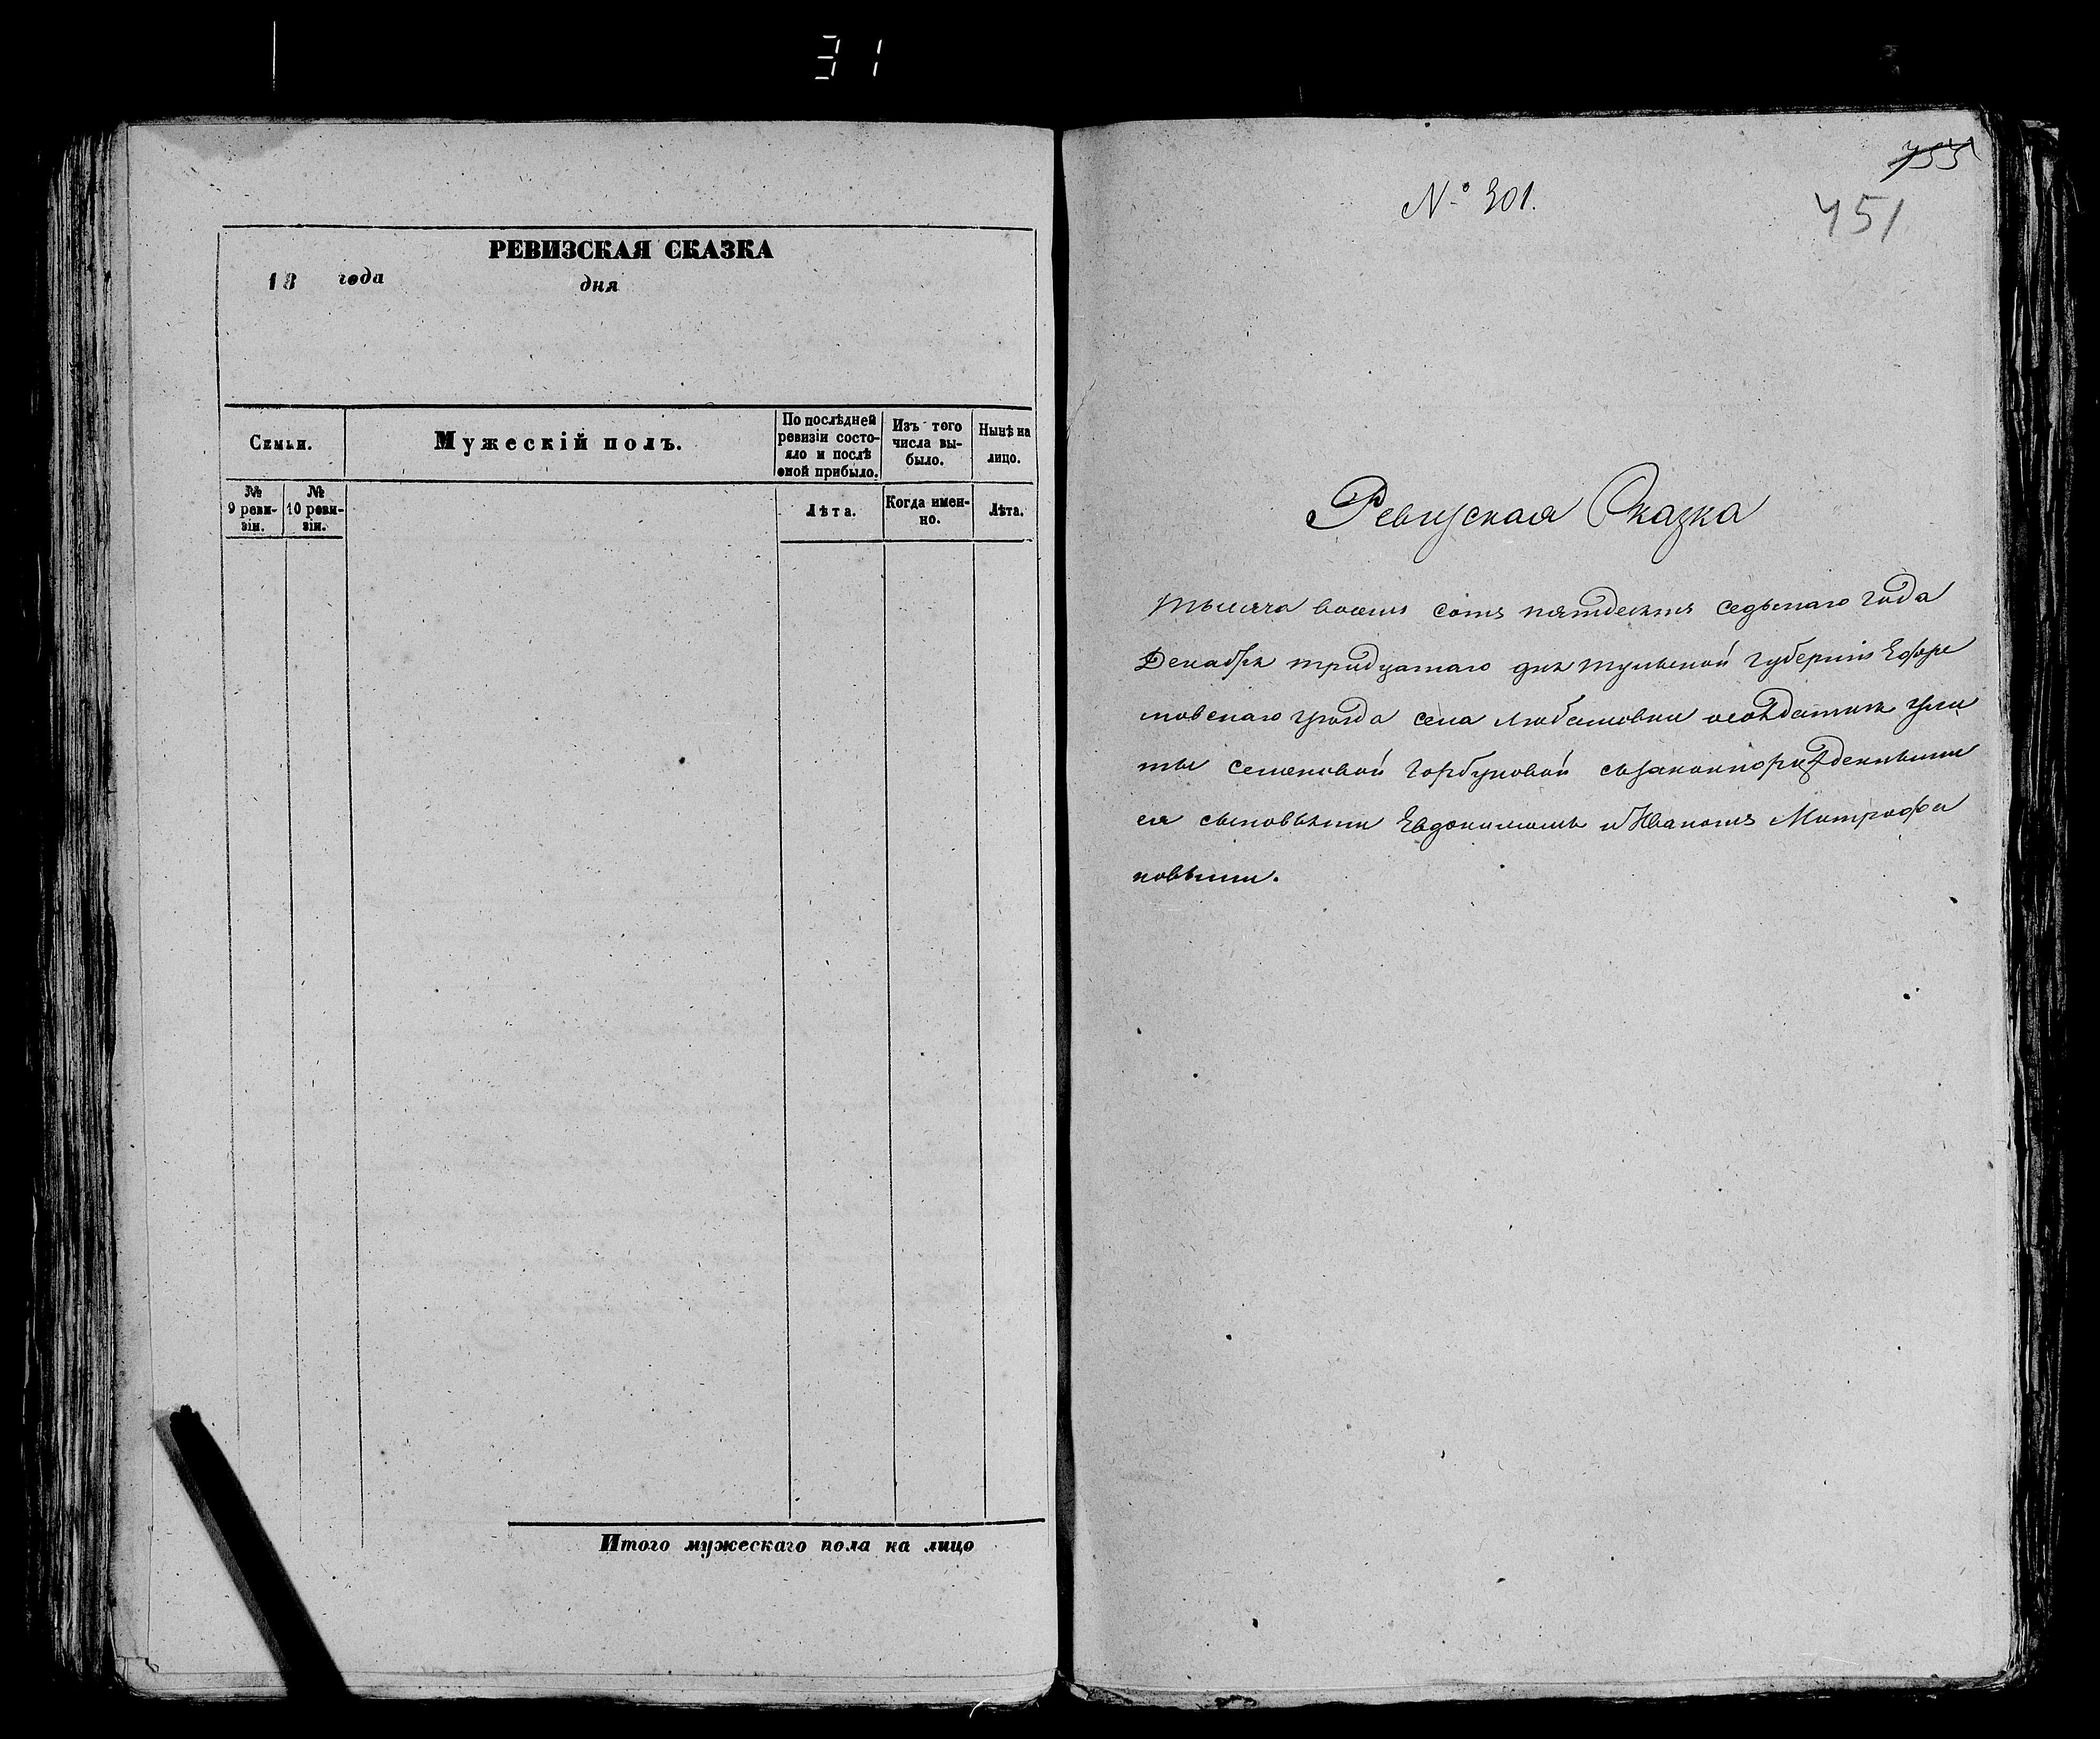 31
РЕВИЗСКАЯ СКАЗКА
18 года дня
Семьи.
Мужескій полъ.
По послѣдней ревизіи состо-
яло и послѣ оной прибыло.
Изъ того числа вы-
было.
Нынѣ на лицо.
№ 9 реви-
зіи.
№ 10 реви-
зіи.
Лѣта.
Когда имен-
но.
Лѣта.
Итого мужескаго пола на лицо
755
№ 301.
451
Ревизская Сказка
Тысяча восемь сотъ пятдесятъ седьмаго года
Декабря тридцатаго дня тульской губерніи Ефре
мовскаго уѣзда села любашовки солдатки Ули
ты семеновой Горбуновой съ законнорожденными
ея сыновьями Евдокимомъ и Иваномъ Митрофа
новыми.